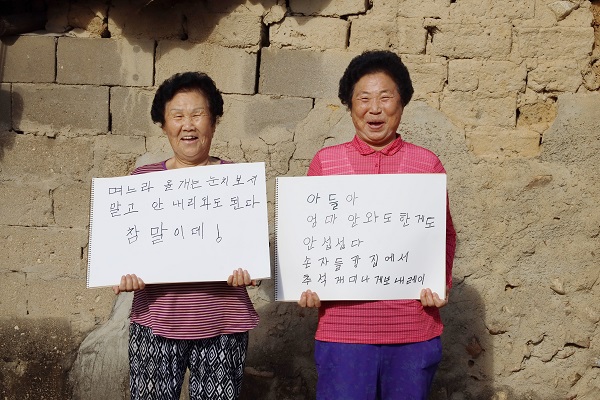 며느라 올개는 눈치보지
말고 안 내리와도 된다
참말이데!
아들아
엄마 안와도 한게도
안섭섭다
손자들캉 집에서
추석 재미나게보내레이